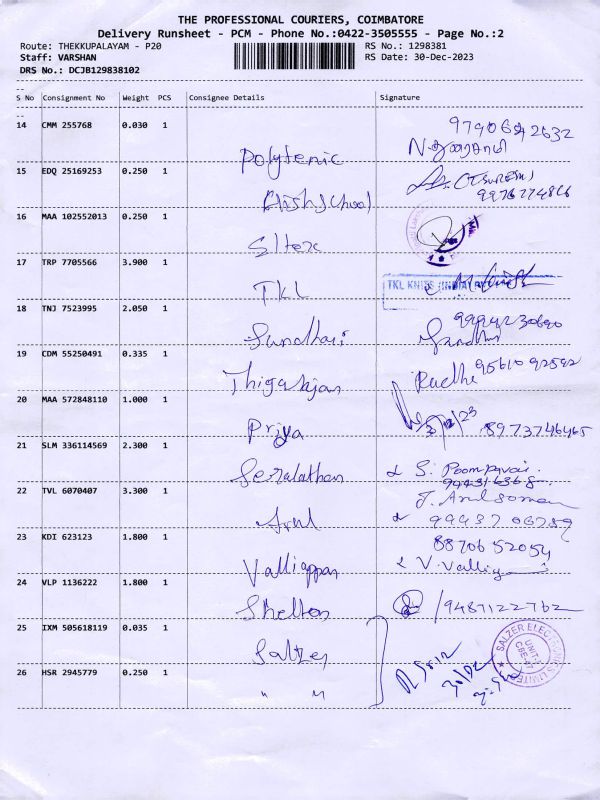 THE PROFESSIONAL COURIERS, COIMBATORE
Delivery Runsheet - PCM - Phone No.:0422-3505555 - Page No.:2
Route: THEKKUPALAYAM - P20 RS No.: 1298381
Staff: VARSHAN RS Date: 30-Dec-2023
DRS No.: DCJB129838102
S No Consignment No Weight PCS Consignee Details Signature
14 CMM 255768 0.030 1 Polytenic
15 EDQ 25169253 0.250 1 High School
16 MAA 102552013 0.250 1
17 TRP 7705566 3.900 1 TKL TKL KNITS (INDIA)
18 TNJ 7523995 2.050 1
19 CDM 55250491 0.335 1 Radhe
20 MAA 572848110 1.000 1 Priya 8973746465
21 SLM 336114569 2.300 1 Seralathan S. Poompavai
22 TVL 6070407 3.300 1 Arul
23 KDI 623123 1.800 1 Valliappan 88706 52054
24 VLP 1136222 1.800 1 Shelton 9487122762
25 IXM 505618119 0.035 1 Salzer
SALZER ELECTRONICS LIMITED
UNIT-I
CBE-47
26 HSR 2945779 0.250 1 " "